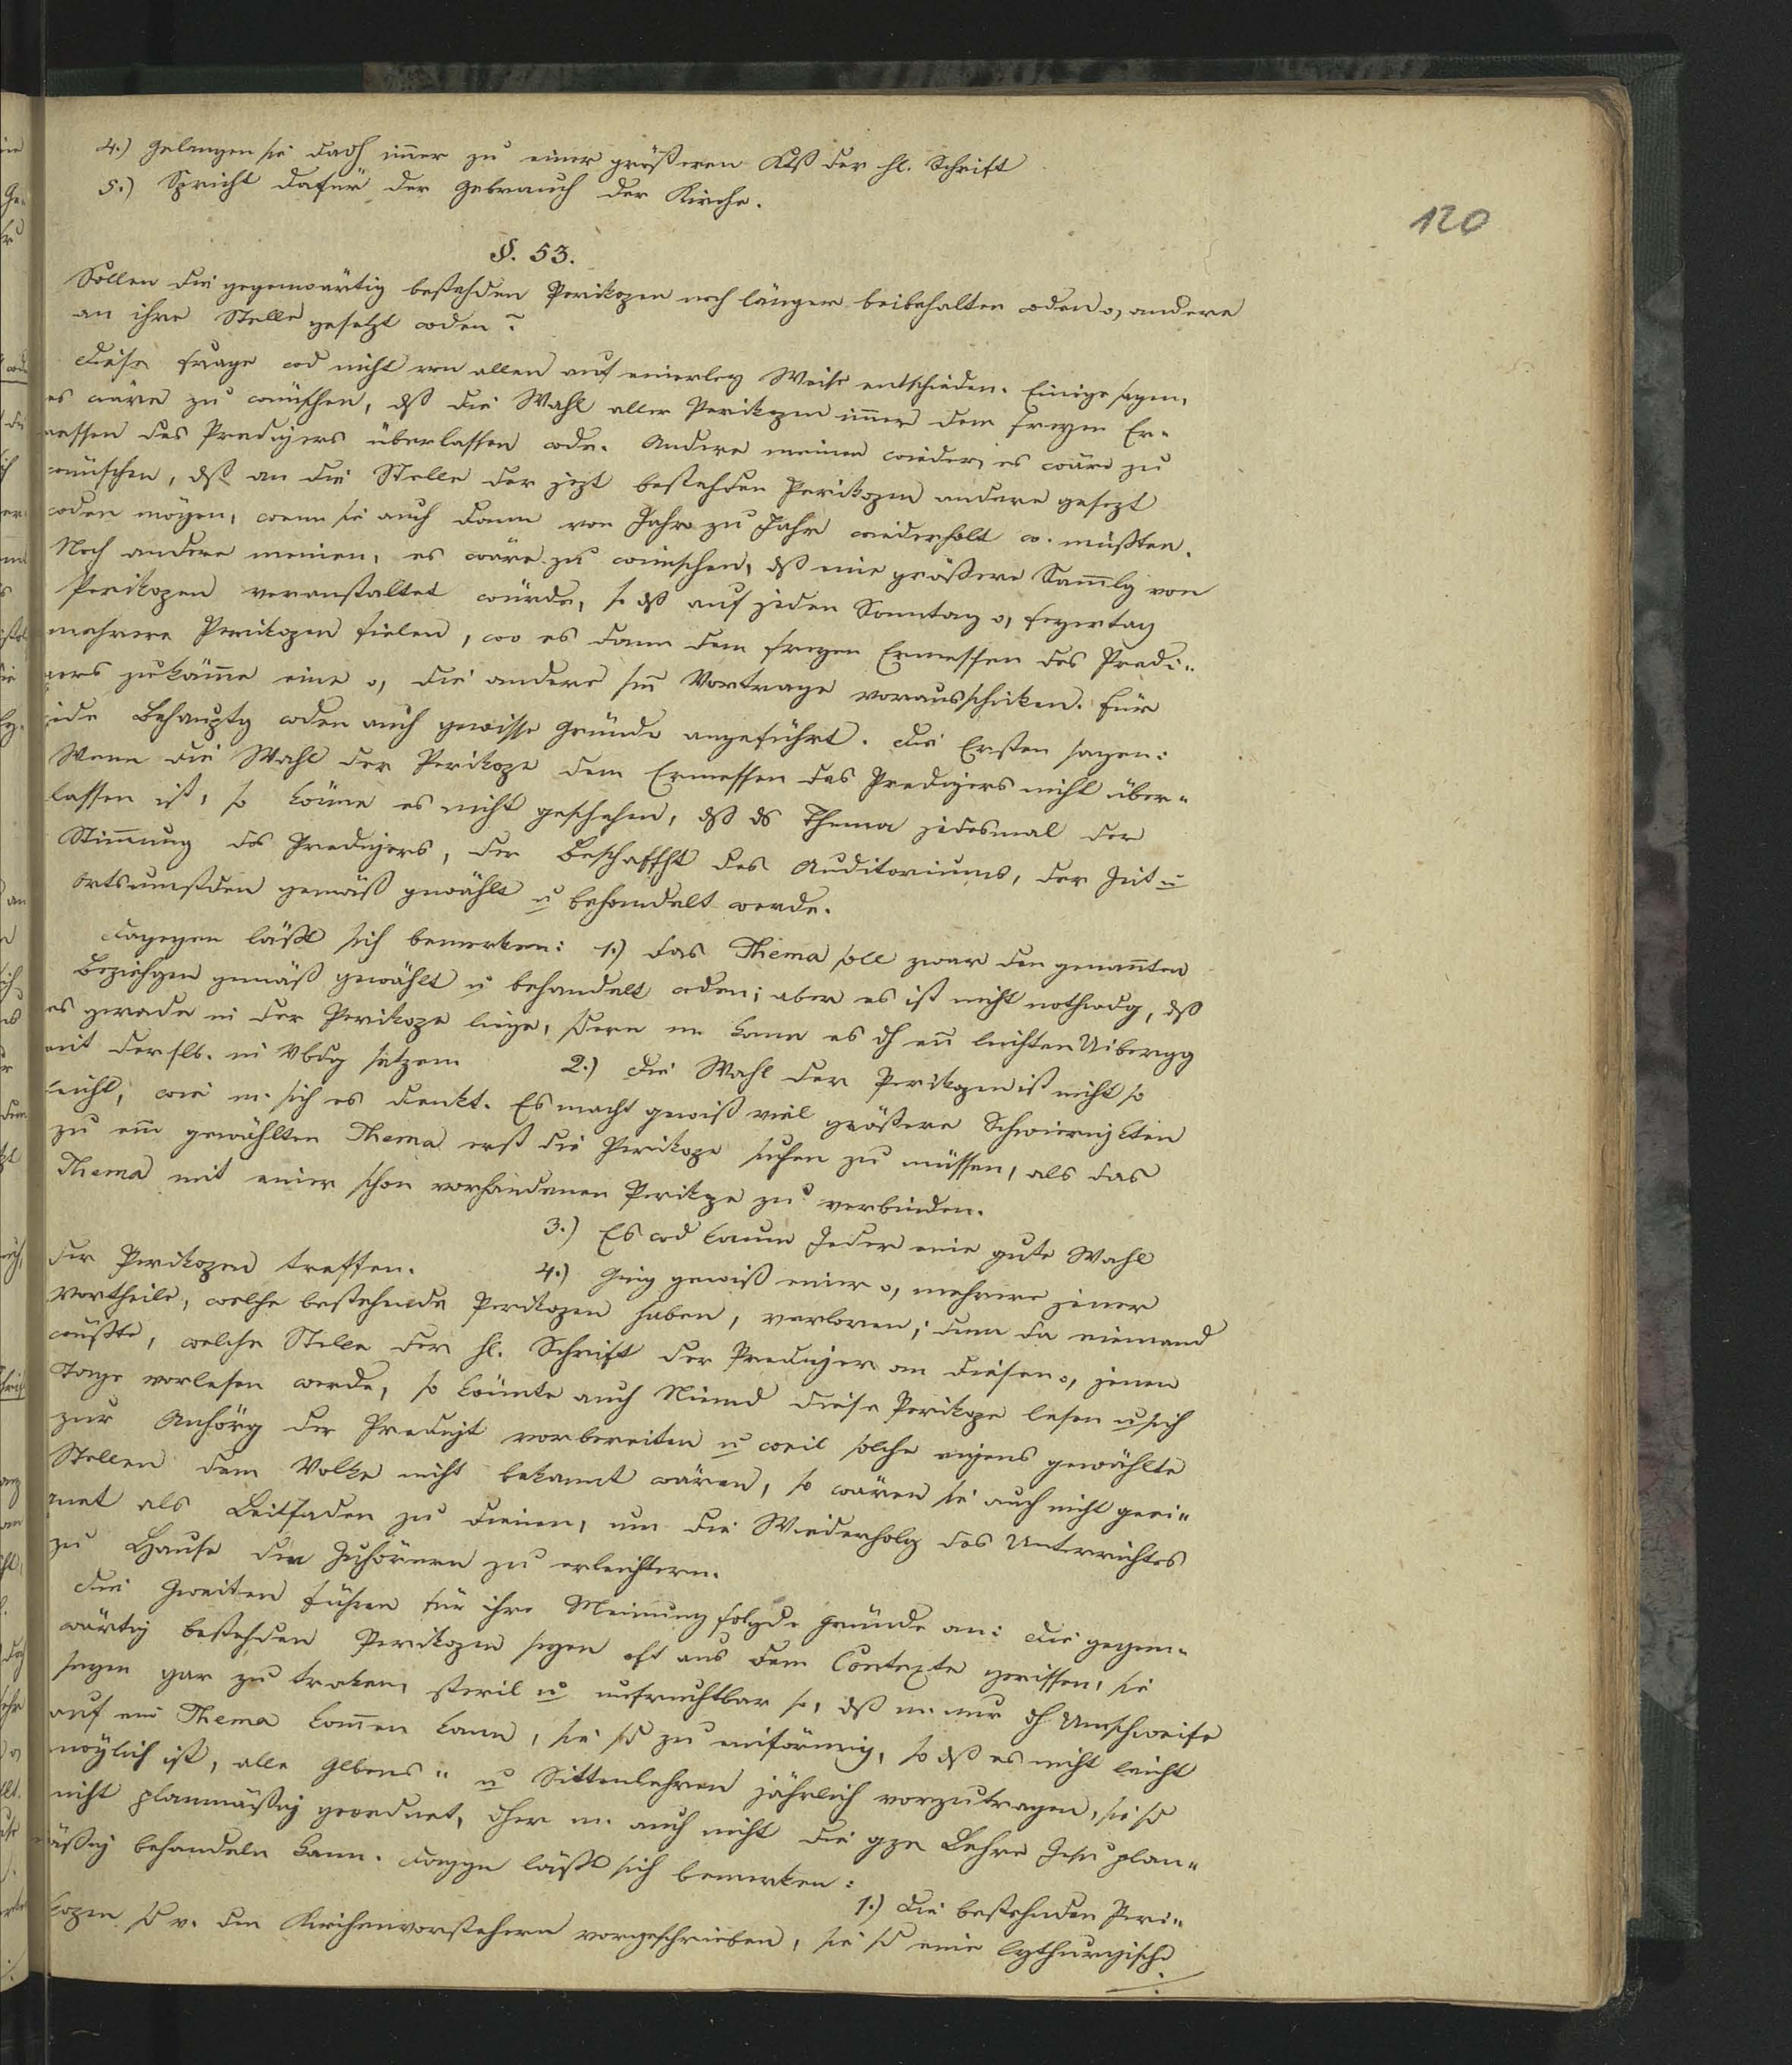 120
4.) Gelangen sie dadh immer zu einer größeren Ktß der hl. Schrift
5.) Spricht dafür der Gebrauch der Kirche.
§. 53.
Sollen die gegenwärtig bestehden Perikopen noch länger beibehalten oden o, andere
an ihre Stelle gesetzt oden?
Diese Frage wd nicht von allen auf einerley Weise entschieden. Einige sagen,
es wäre zu wünschen, dß die Wahl aller Perikopen immer dem freyen Er-
messen des Predigers überlassen wde. Andere meinen wieder, es wäre zu
wünschen, dß an die Stelle der jezt bestehden Perikopen andere gesezt
wden mögen, wenn sie auch dann von Jahr zu Jahr wiederholt w. müßten.
Noch andere meinen, es wäre zu wünschen, dß eine größere Sammlg von
Perikopen veranstaltet würde, so dß auf jeden Sonntag o, Feyertag
mehrere Perikopen fielen, wo es dann dem freyen Ermessen des Predi-
gers zukäme eine o, die andere sm Vortrage vorausschicken. Für
jede Behauptg wden auch gewisse Gründe angeführt. Die Ersten sagen:
Wenn die Wahl der Perikope dem Ermessen des Predigers nicht über-
lassen ist, so könne es nicht geschehen, dß ds Thema jedesmal der
Stimmung des Predigers, der Beschaffht des Auditoriums, der Zeit u
Ortsumstden gemäß gewählt u behandelt werde.
Dagegen läßt sich bemerken: 1.) Das Thema soll zwar den genannten
Beziehgen gemäß gewählt u behandelt wden; aber es ist nicht nothwdg, dß
es gerade in der Perikope liege, sdern m. kann es dh en leichten Uibergg
mit derslb. in Vbdg setzen. 2.) Die Wahl der Perikopen ist nicht so
leicht, wie m. sich es denkt. Es macht gewiß viel größere Schwierigkten
zu em gewählten Thema erst die Perikope suchen zu müssen, als das
Thema mit einer schon vorhandenen Perikpe zu verbinden.
3.) Es wd kaum Jeder eine gute Wahl
der Perikopen treffen. 4.) Ging gewiß einer o, mehrere jener
Vortheile, welche bestehende Perikopen haben, verloren; denn da niemand
wüßte, welche Stelle der hl. Schrift der Prediger an diesem o, jenem
Tage vorlesen werde, so könnte auch Niemd diese Perikope lesen u sich
zur Anhörg der Predigt vorbereiten u weil solche eigens gewählte
Stellen dem Volke nicht bekannt wären, so wären sie auch nicht geei-
gnet als Leitfaden zu dienen, um die Wiederholg des Unterrichtes
zu Hause den Zuhörern zu erleichtern.
Die Zweiten führen für ihre Meinung folgde Gründe an: Die gegen-
wärtig bestehden Perikopen seyen oft aus dem Contexte gerissen, sie
seyen gar zu troken, steril u unfruchtbar so, dß m. nur dh Umschweife
auf ein Thema kommen kann, sie sd zu einförmig, so dß es nicht leicht
möglich ist, alle Glbens- u Sittenlehren jährlich vorzutragen, sie sd
nicht planmäßig geordnet, dher m. auch nicht die gze Lehre Jesu plan-
mäßig behandeln kann. Daggn läßt sich bemerken:
1.) Die bestehnden Peri-
kopen sd v. den Kirchenvorstehern vorgeschrieben, sie sd eine lythurgische